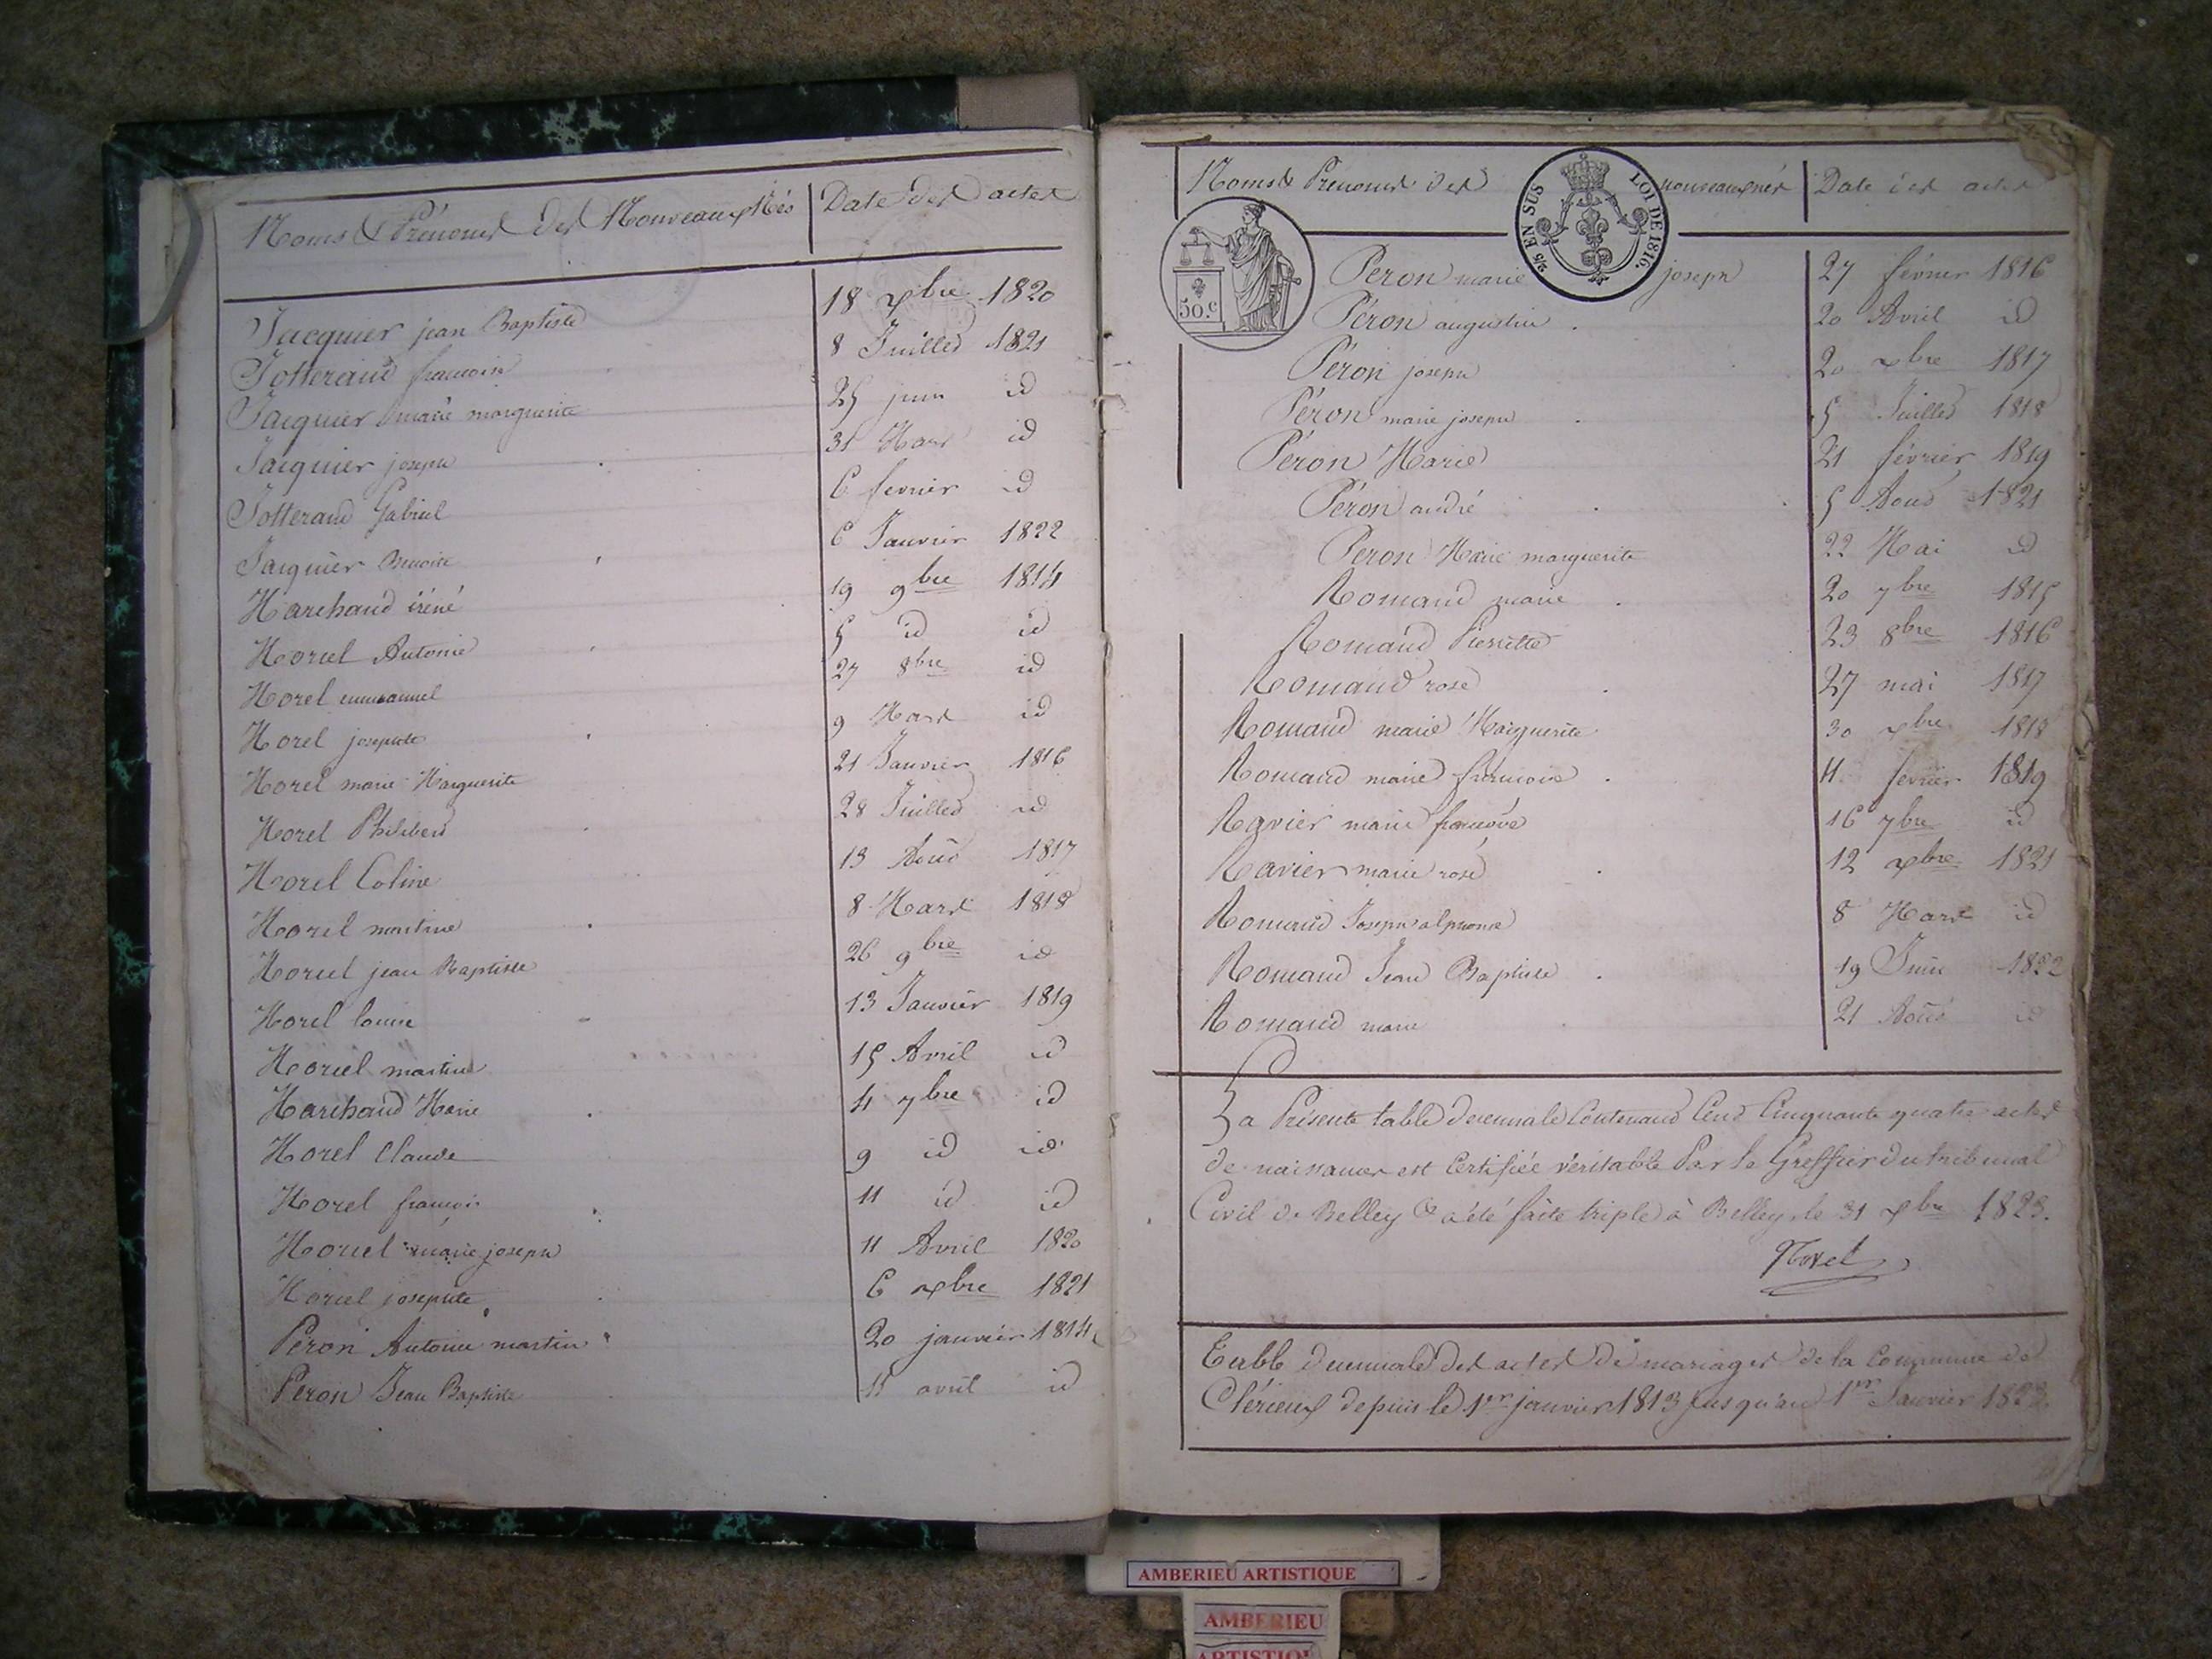 Noms & Prénoms des Nouveaux Nés Date des actes
Jacquier jean Baptiste 18 xbre 1820
Jotteraud francois 8 Juillet 1821
Jacquier marie marguerite 25 juin id
Jacquier joseph 31 Mars id
Jotteraud Gabriel 6 fevrier id
Jacquier Benoite 6 Janvier 1822
Marchand iréné 19 9bre 1814
Morel Antoine 5 id id
Morel emmanuel 27 8bre id
Morel josephte 9 Mars id
Morel marie Marguerite 21 Janvier 1816
Morel Philibert 28 Juillet id
Morel Coline 13 Août 1817
Morel martine 8 Mars 1818
Morel jean Baptiste 26 9bre id
Morel louise 13 Janvier 1819
Morel martine 15 Avril id
Marchand Marie 4 7bre id
Morel Claude 9 id id
Morel francois 11 id id
Morel marie joseph 11 Avril 1820
Morel josephte 6 xbre 1821
Peron Antoine martin 20 janvier 1814
Peron Jean Baptiste 11 avril id
Noms & Prenoms des nouveaux nés Date des actes
2/5 EN SUS LOI DE 1816.
50.c
Peron marie joseph 27 février 1816
Péron augustin 20 Avril id
Péron joseph 20 xbre 1817
Péron marie joseph 5 Juillet 1818
Péron Marie 21 février 1819
Péron andré 5 Aout 1821
Peron Marie marguerite 22 Mai id
Romand marie 20 7bre 1815
Romand Pierrette 23 8bre 1816
Romand rose 27 mai 1817
Romand marie Marguerite 30 xbre 1818
Romand marie francoise 11 fevrier 1819
Ravier marie francoise 16 7bre id
Ravier marie rose 12 xbre 1821
Romand Joseph alphonse 8 Mars id
Romand Jean Baptiste 19 Juin 1822
Romand marie 21 Août id
La Présente table decennale Contenant Cent Cinquante quatre actes
de naissances est Certifiée véritable Par le Greffier du tribunal
Civil de Belley & a été faite triple à Belley le 31 xbre 1823.
Table decennale des actes de mariages de la Commune de
Clérieux depuis le 1er janvier 1813 jusqu'au 1er Janvier 1823
AMBERIEU ARTISTIQUE
AMBERIEU
ARTISTIQUE